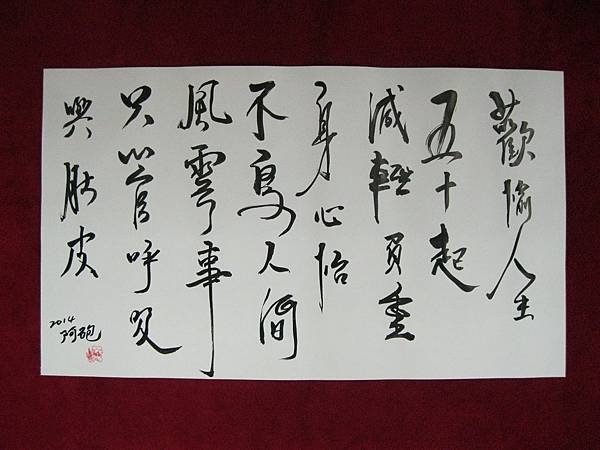 歡愉人生
五十起
減輕負重
身心怡
不憂人間
風雲事
只管呼吸
與肚皮
2014
阿砲